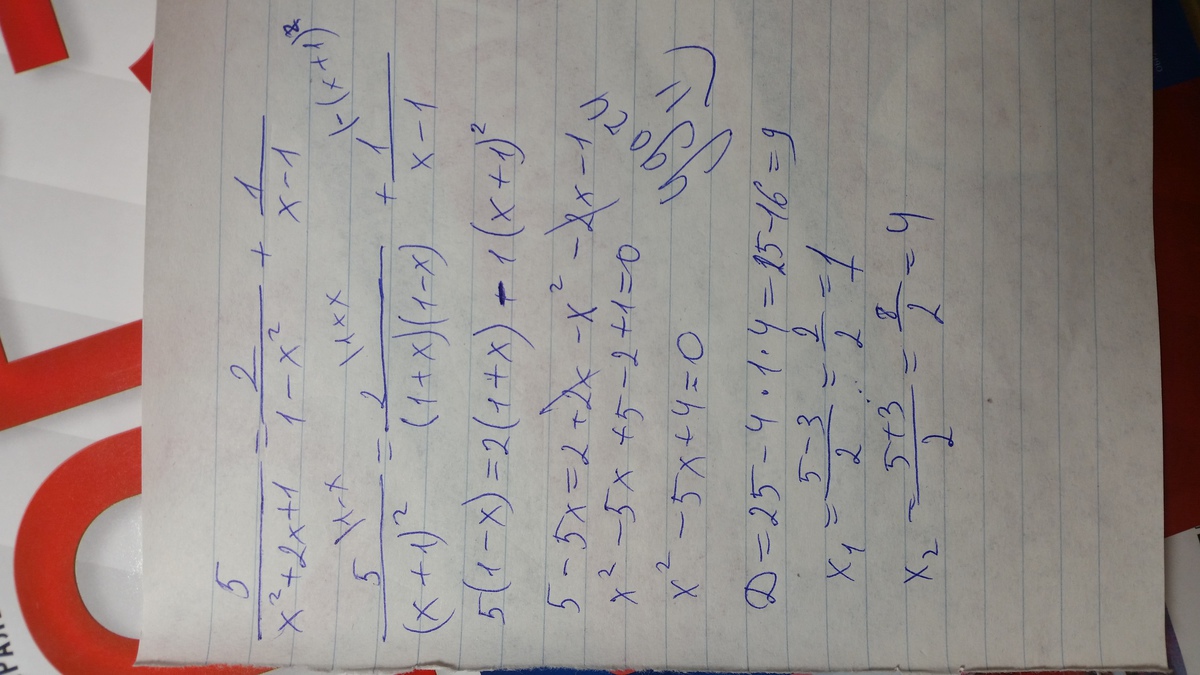 5/(x²+2x+1) = 2/(1-x²) + 1/(x-1)
5\1-x/(x+1)² = 2\1+x/((1+x)(1-x)) + 1\-(x+1)²/(x-1)
5(1-x)=2(1+x)-1(x+1)²
5-5x=2+2x-x²-2x-1
x²-5x+5-2+1=0
x²-5x+4=0
D=25-4·1·4=25-16=9
x₁=(5-3)/2=2/2=1
x₂=(5+3)/2=8/2=4
РАЛ